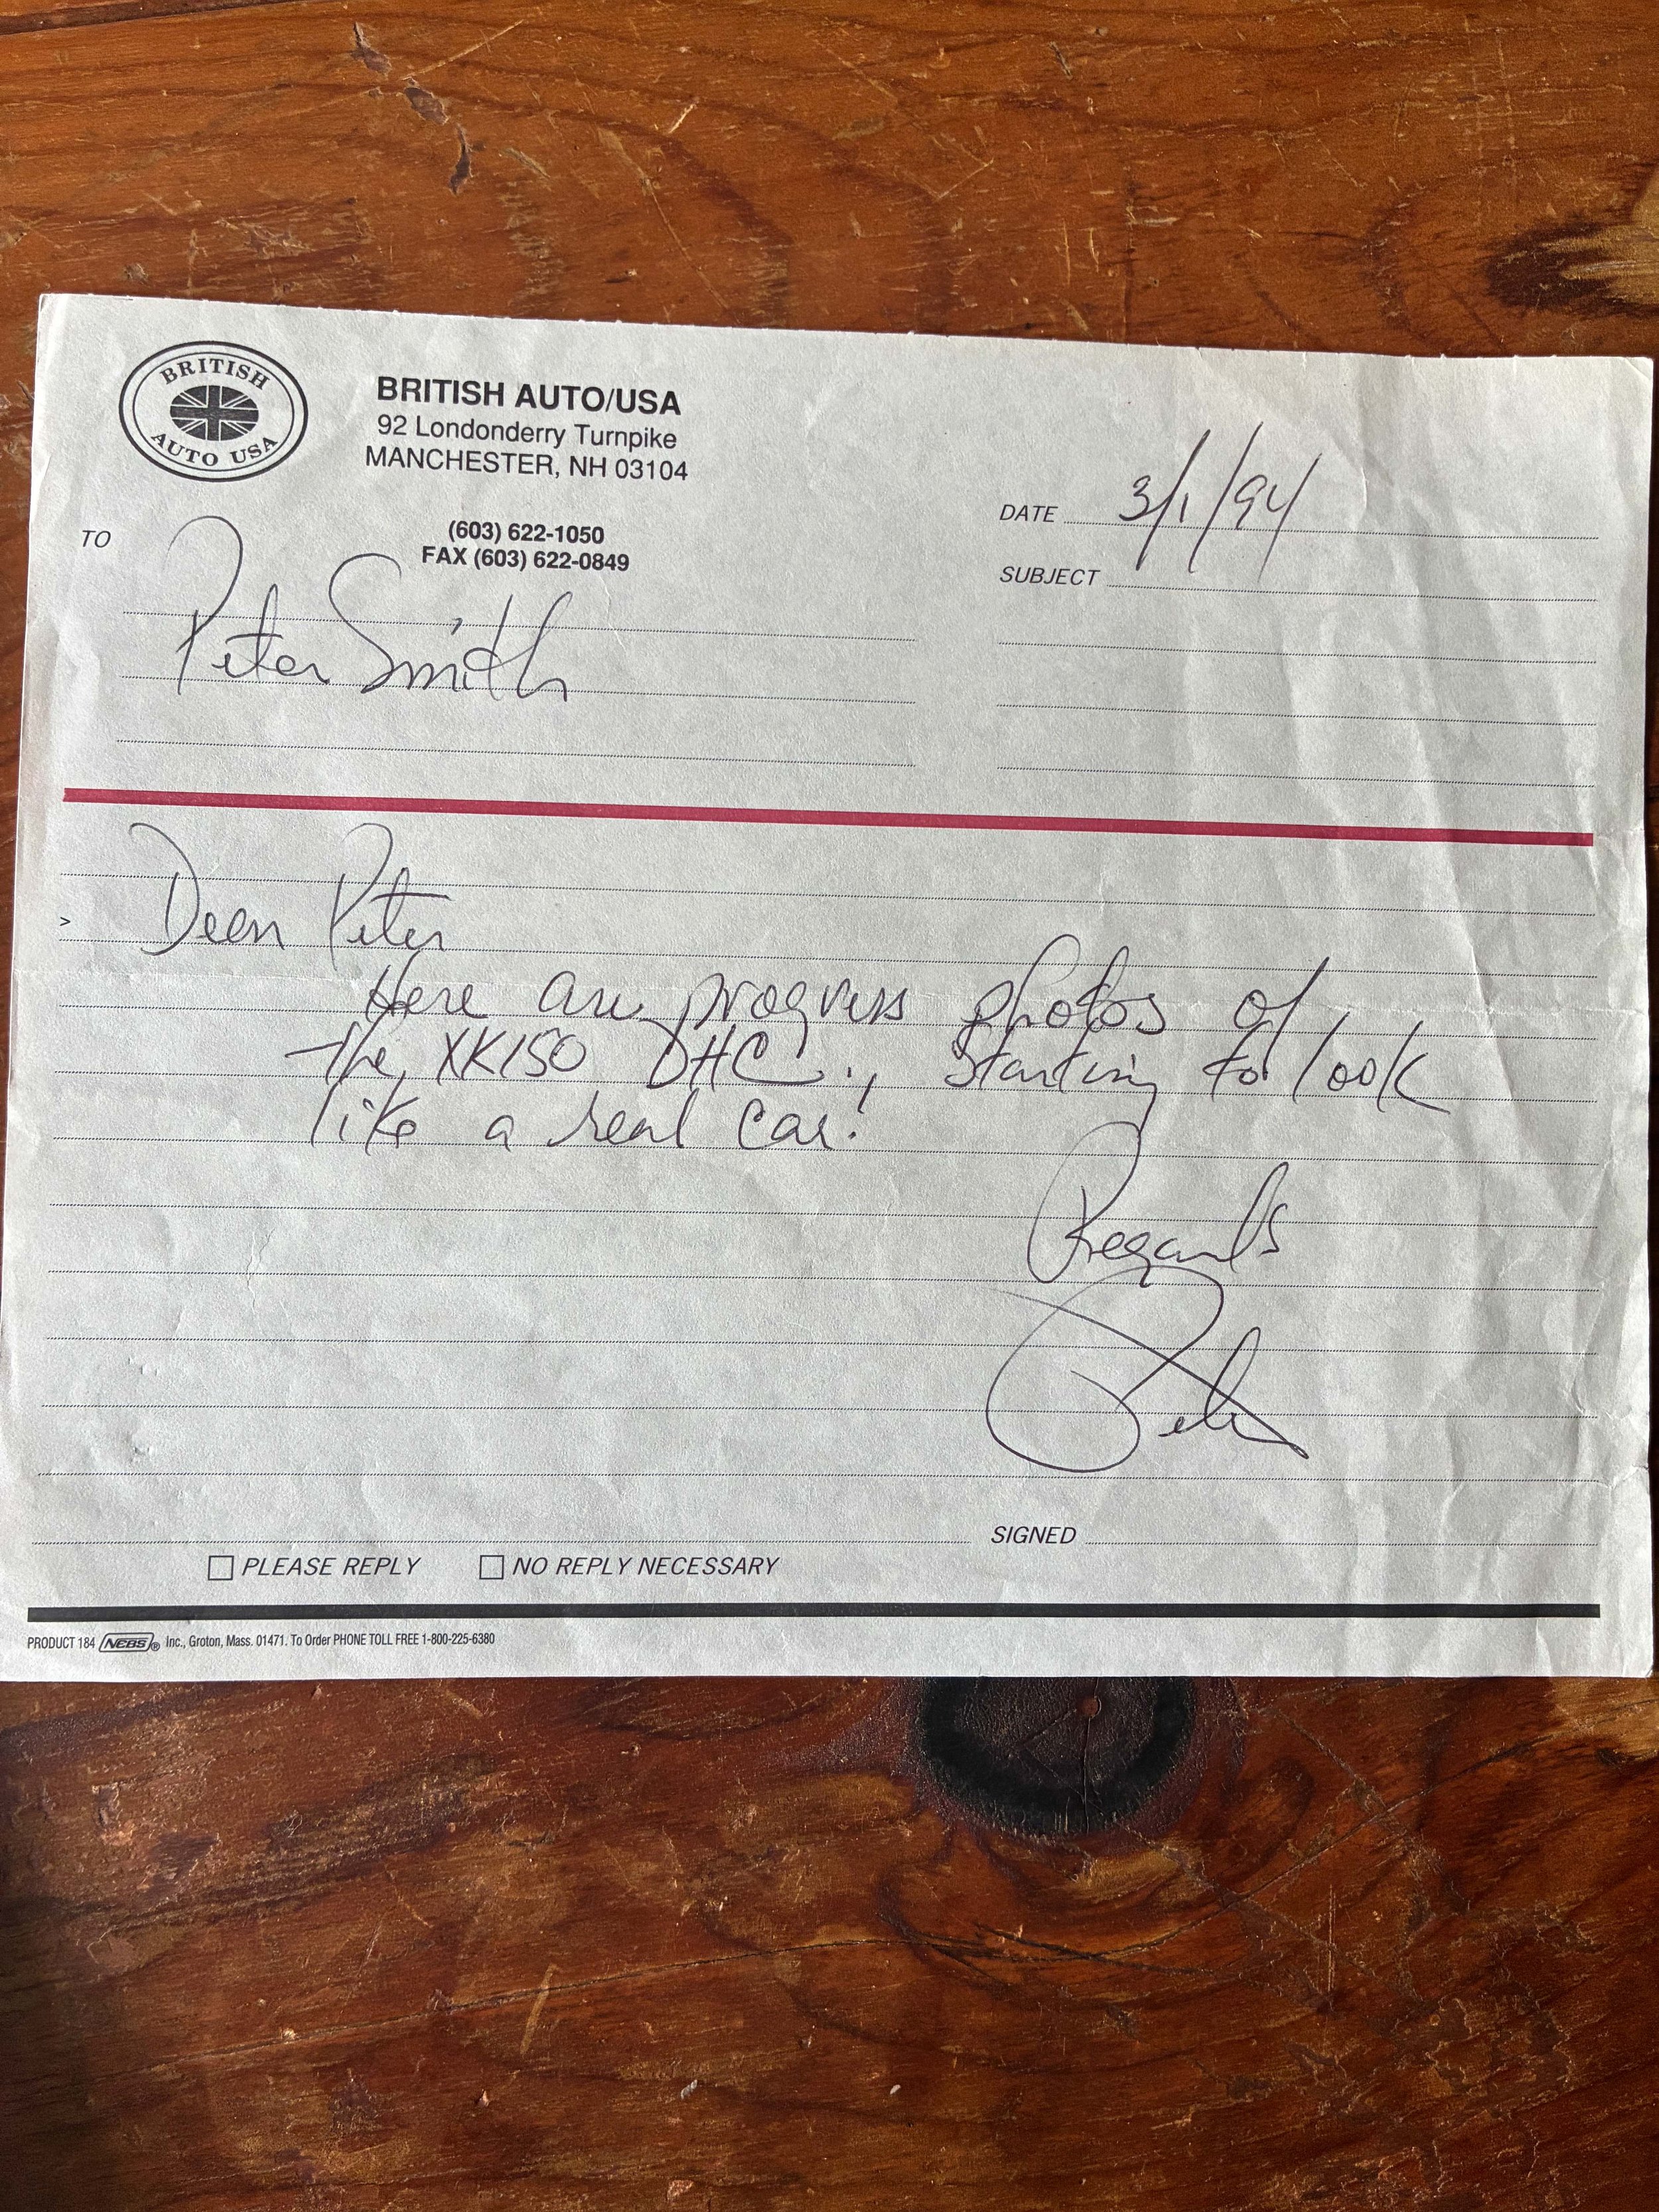 BRITISH
AUTO USA
BRITISH AUTO/USA
92 Londonderry Turnpike
MANCHESTER, NH 03104
(603) 622-1050
FAX (603) 622-0849
DATE 3/1/94
SUBJECT
TO
Peter Smith
>
Dear Peter
Here are progress photos of
the XK150 DHC., Starting to look
like a real car!
Regards
SIGNED
PLEASE REPLY
NO REPLY NECESSARY
PRODUCT 184 NEBS ® Inc., Groton, Mass. 01471. To Order PHONE TOLL FREE 1-800-225-6380